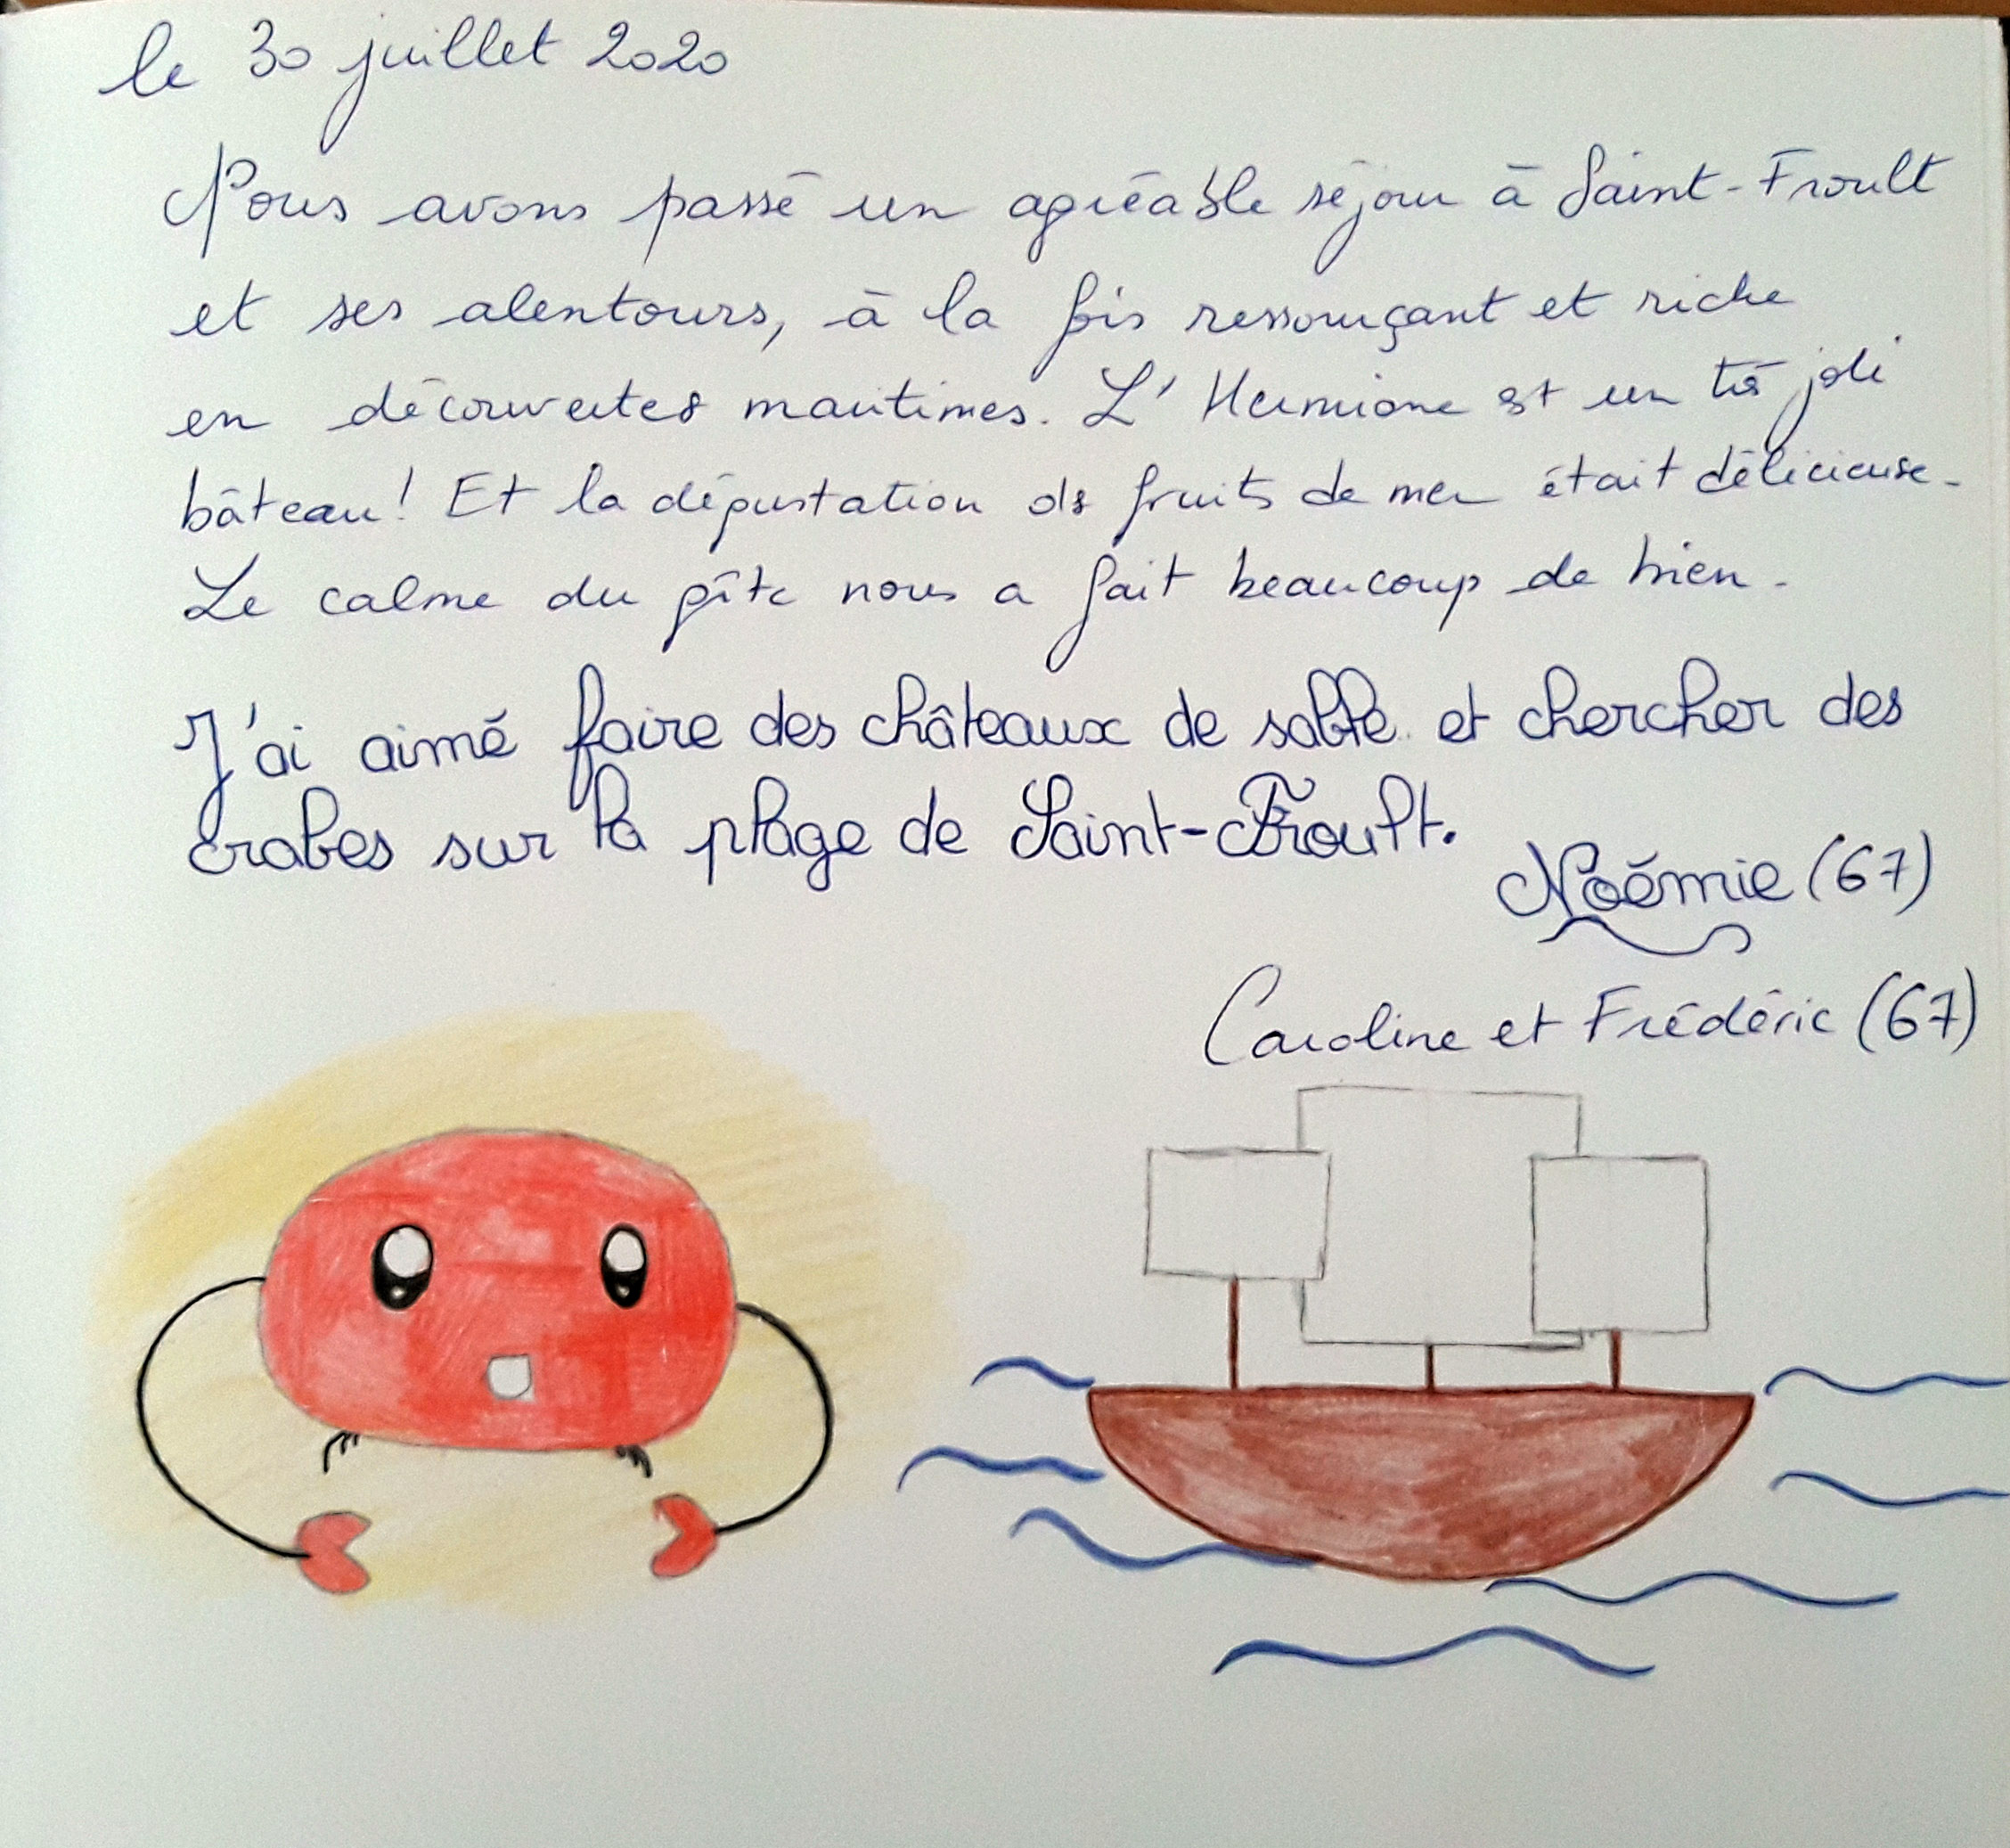 le 30 juillet 2020
Nous avons passé un agréable séjour à Saint-Froult
et ses alentours, à la fois ressourçant et riche
en découvertes maritimes. L'Hermione est un très joli
bâteau! Et la dégustation de fruits de mer était délicieuse.
Le calme du gîte nous a fait beaucoup de bien.
J'ai aimé faire des châteaux de sable et chercher des
crabes sur la plage de Saint-Froult.
Noémie (67)
Caroline et Frédéric (67)